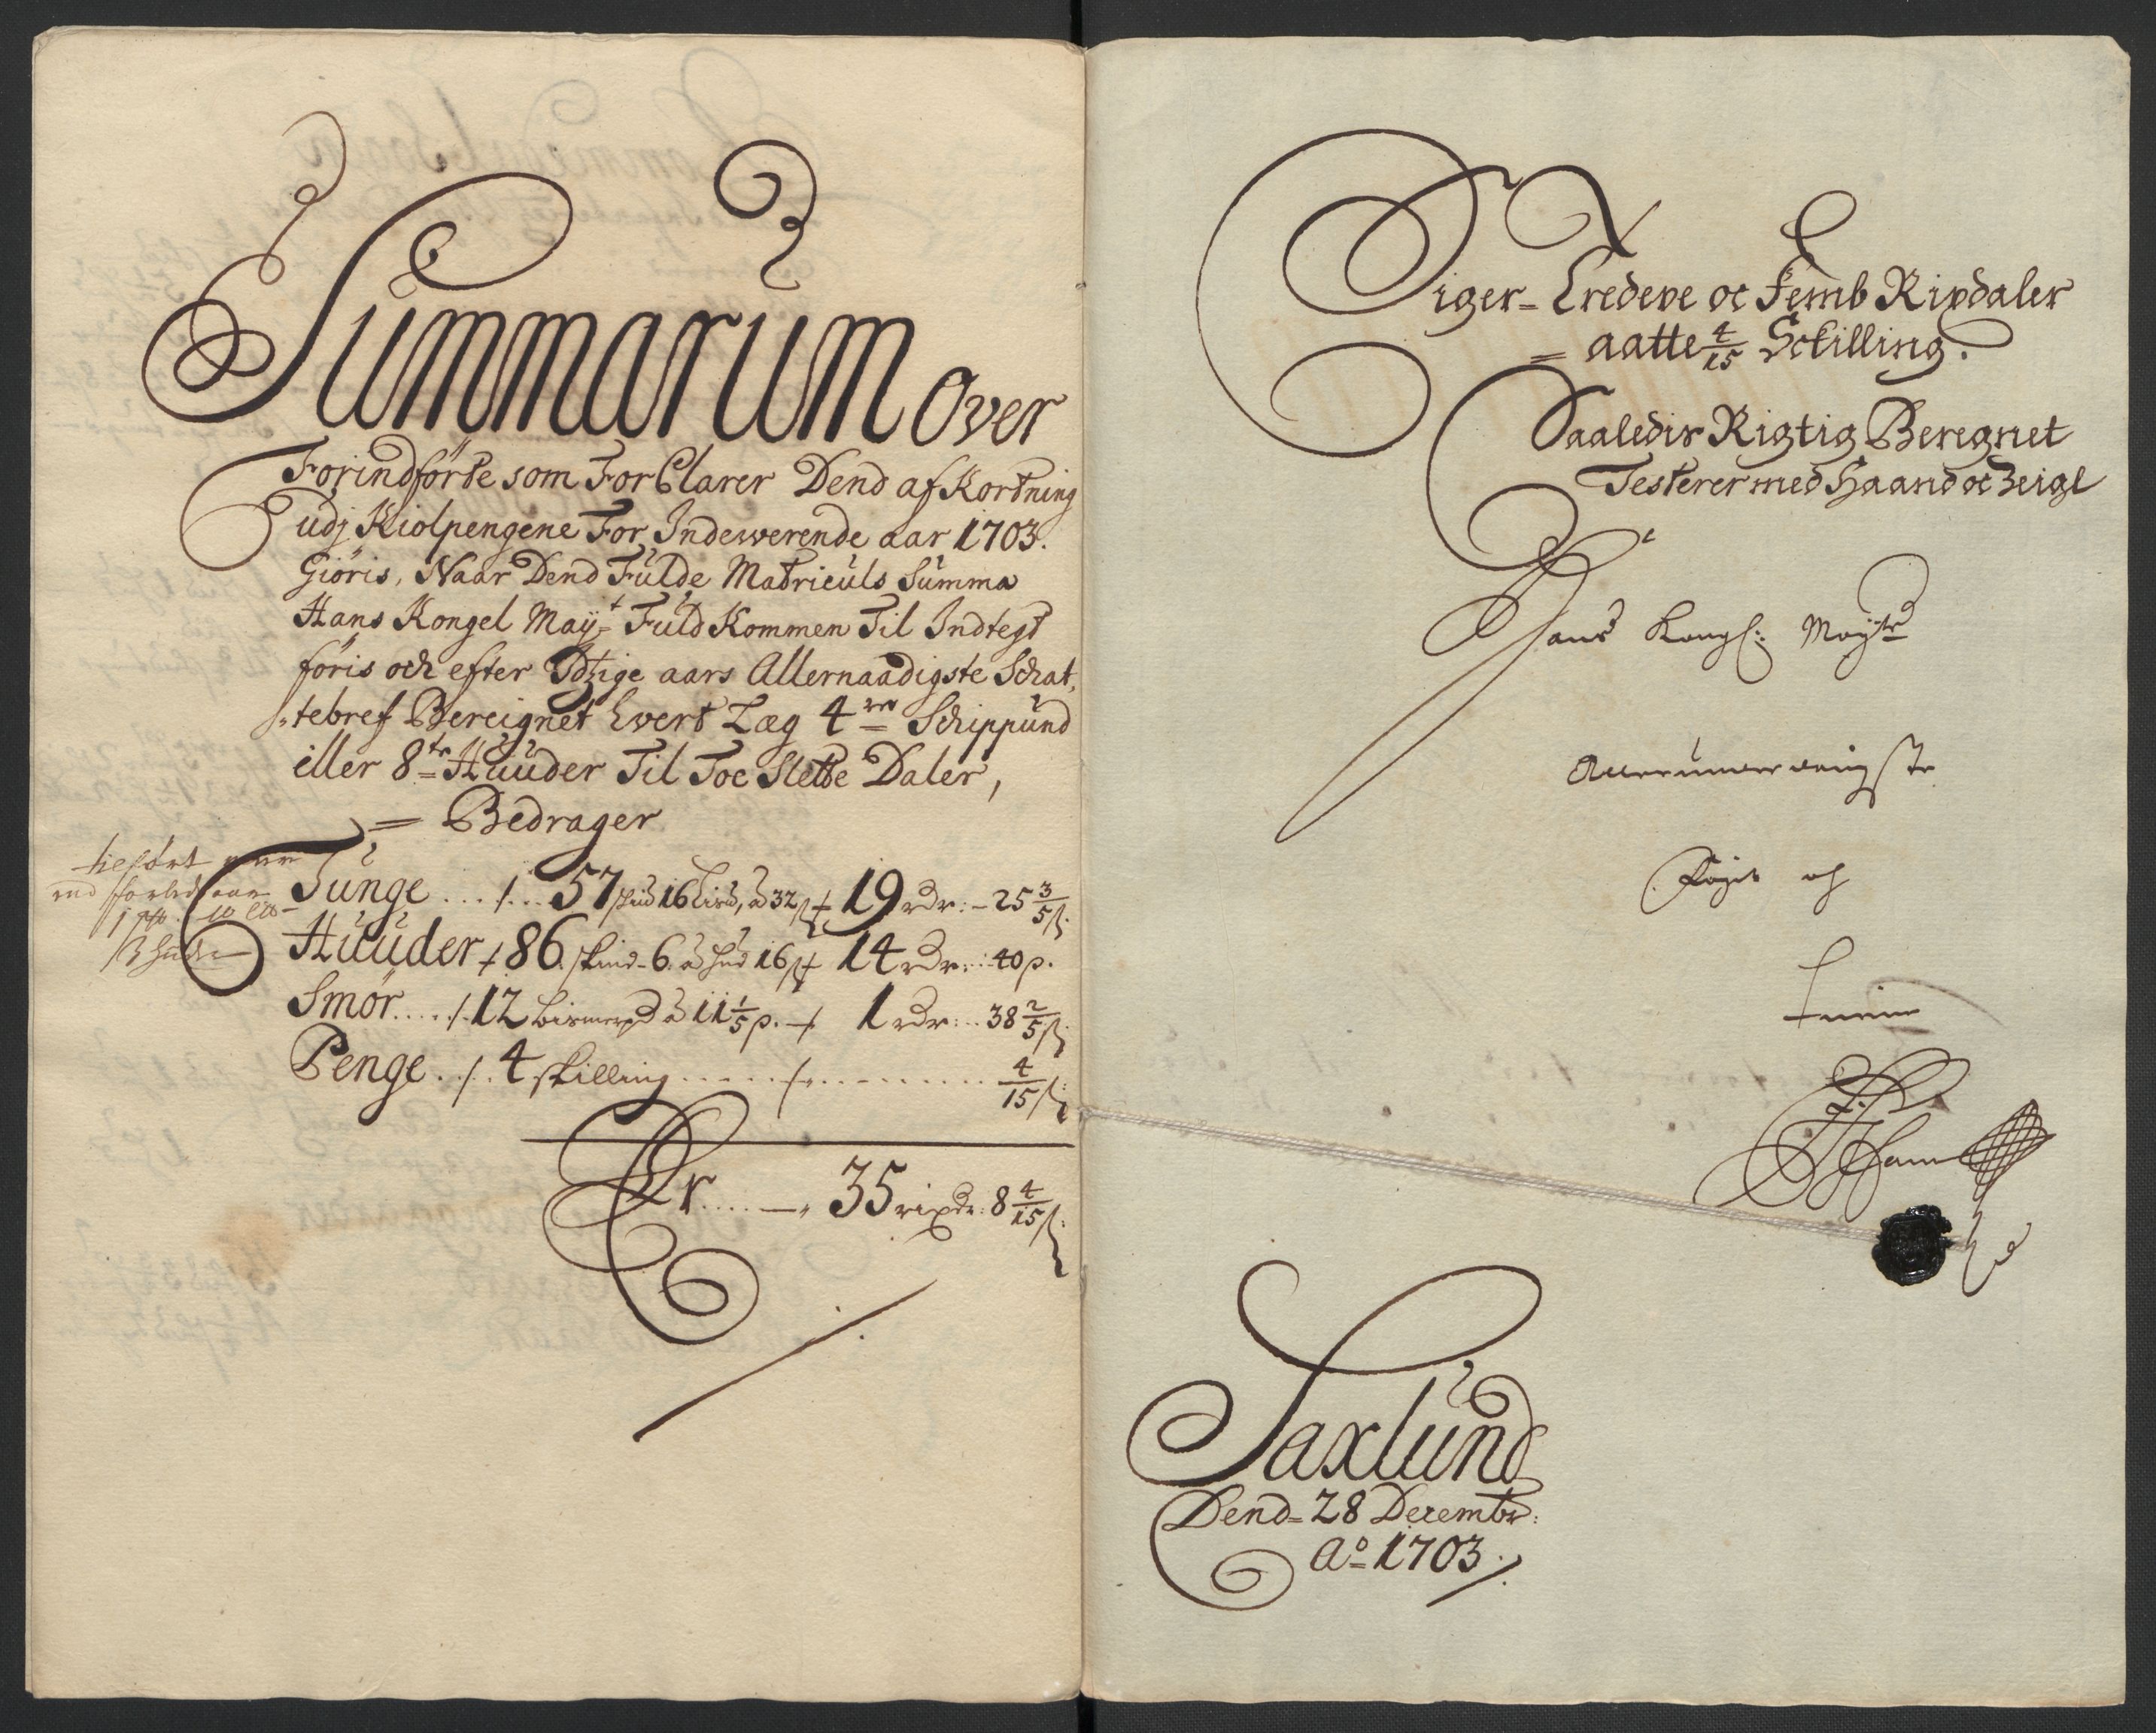 Summarum over
Forindförte som ForClarer Dend af Kortning
udj Kiolpengene For Indewerende aar 1703.
Giöris, Naar Dend Fulde Matriculs Summa
Hans Kongel Mayt Fuld Kommen Til Indtegt
föris och efter Idtzige aars Allernaadigste Schat
tebref Bereignet hvert Læg 4re Schippund
eller 8te Huuder Til Toe Slette Daler,
= Bedrager
Tunge ... /. .. 57 16 à 32 s 19 rdr: - 25 3/5 s.
Huuder 86 skind - 6 à hud 16 s 14 rdr: 40 s.
Smör .... /. 12 bismerpd à 11 1/5 s. 1 rdr: .. 38 2/5 s.
Penge . /. 4 skilling ..... /. ......... 4/15 s.
Er .... 35 rixdr: 8 4/15 s.
Siger - Tredeve oc Femb Rixdaler
= aatte 4/15 Schilling.
Saaledis Rigtig Beregnet
Testerer med Haand oc Zeigl
Hans Kongl: Maytz
Allerunderdanigste
Foget og
tienner
Saxlund
Dend = 28 Decembr:
Ao 1703.